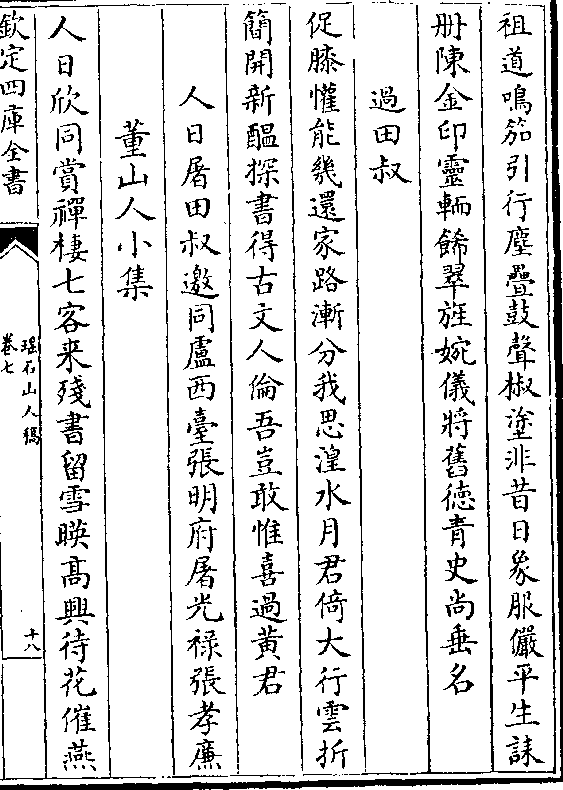 祖道鳴笳引行塵疊鼓聲椒塗非昔日象服儼平生誄
册陳金印靈輀餙翠旌婉儀將舊徳青史尚垂名
過田叔
促膝懽能幾還家路漸分我思湟水月君倚大行雲折
簡開新醞探書得古文人倫吾豈敢惟喜過黄君
人日屠田叔邀同盧西臺張明府屠光禄張孝廉
董山人小集
人日欣同賞禪棲七客来殘書留雪暎髙興待花催燕
欽定四庫全書
瑶石山人稿
卷七
十八